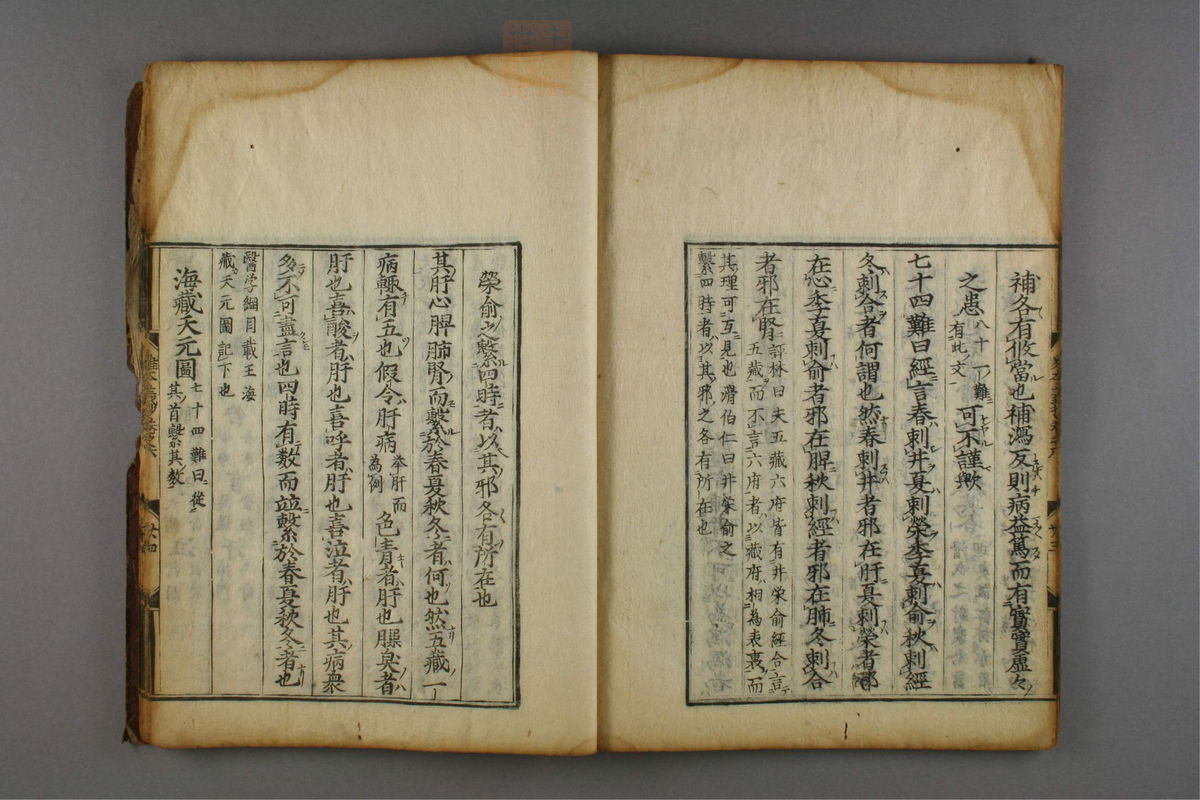 補各有攸當也補瀉反則病益篤而有實實虛々
之患八十一難有此文可不謹歟
七十四難曰經言春刺井夏刺滎季夏刺俞秋刺經
冬刺合者何謂也然春刺井者邪在肝夏刺滎者邪
在心季夏刺俞者邪在脾秋刺經者邪在肺冬刺合
者邪在腎評林曰夫五藏六府皆有井滎俞經合言
五藏而不言六府者以藏府相為表裏而
其理可互見也滑伯仁曰井滎俞之
繫四時者以其邪之各有所在也
滎俞之繫四時者以其邪各有所在也
其肝心脾肺腎而繫於春夏秋冬者何也然五藏一
病輙有五也假令肝病舉肝而為例色青者肝也臊臭者
肝也喜酸者肝也喜呼者肝也喜泣者肝也其病衆
多不可盡言也四時有数而並繫於春夏秋冬者也
醫学綱目載王海
藏天元圖記下也
海藏天元圖七十四難曰從
其首繫其数
廿三
廿四